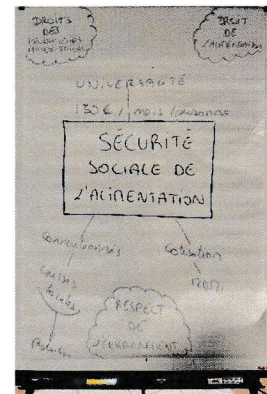 DROITS
DES
DROIT
DE
L'ALIMENTATION
UNIVERSALITÉ
150€ / MOIS / PERSONNE
SÉCURITÉ
SOCIALE DE
L'ALIMENTATION
Conventionnés
Cotisation
Caisses
locales
RESPECT
DE